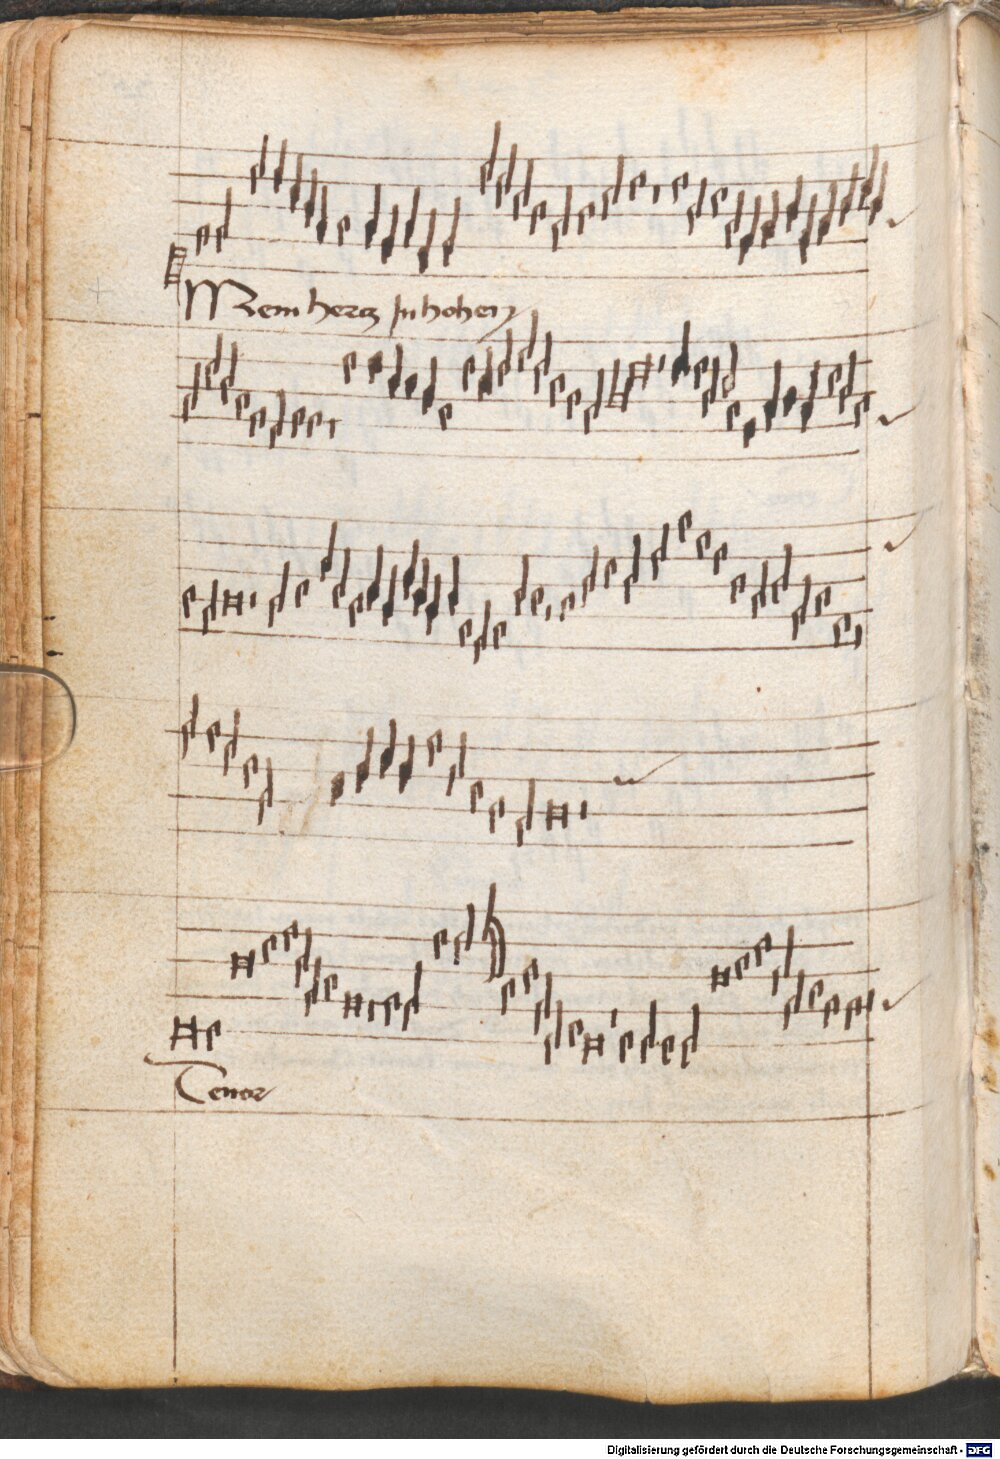 Mein hertz In hohen
Tenor
Digitalisierung gefördert durch die Deutsche Forschungsgemeinschaft - DFG